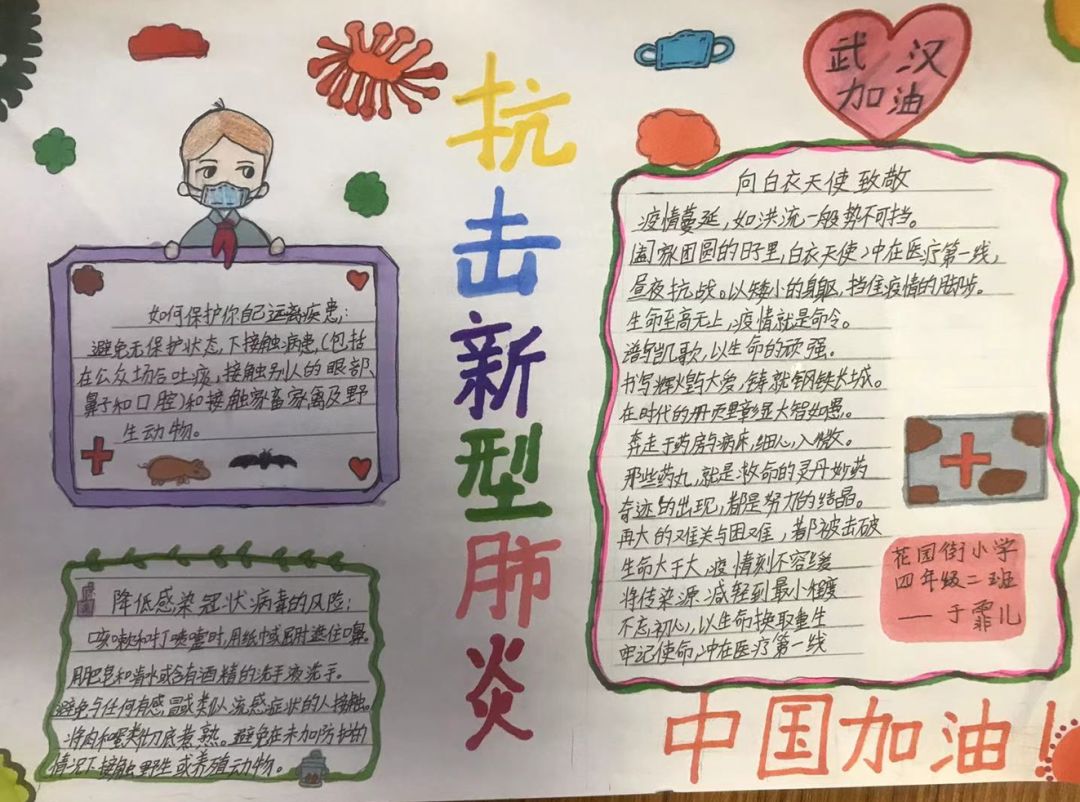 抗击新型肺炎
武汉
加油
如何保护你自己远离疾患,:
避免无保护状态,下接触病患,(包括
在公众场合吐痰,接触别人的眼部、
鼻子和口腔)和接触家畜家禽及野
生动物。
降低感染冠状病毒的风险:
咳嗽和打喷嚏时,用纸巾或屈肘遮住口鼻。
用肥皂和清水或含有酒精的洗手液洗手。
避免与任何有感冒或类似流感症状的人接触。
将肉和蛋类彻底煮熟。避免在未加防护的
情况下接触野生或养殖动物。
向白衣天使致敬
疫情蔓延,如洪流一般势不可挡。
阖家团圆的日子里,白衣天使冲在医疗第一线,
昼夜抗战。以矮小的身躯,挡住疫情的脚步。
生命至高无上,疫情就是命令。
谱写凯歌,以生命的顽强。
书写辉煌大爱,铸就钢铁长城。
在时代的册页里彰显大智如愚。
奔走于药房与病床,细心入微。
那些药丸,就是救命的灵丹妙药
奇迹的出现,都是努力的结晶。
再大的难关与困难,都被击破
生命大于天,疫情刻不容缓
将传染源减轻到最小程度
不忘初心,以生命换取重生
牢记使命,冲在医疗第一线
花园街小学
四年级二班
——于霏儿
中国加油!